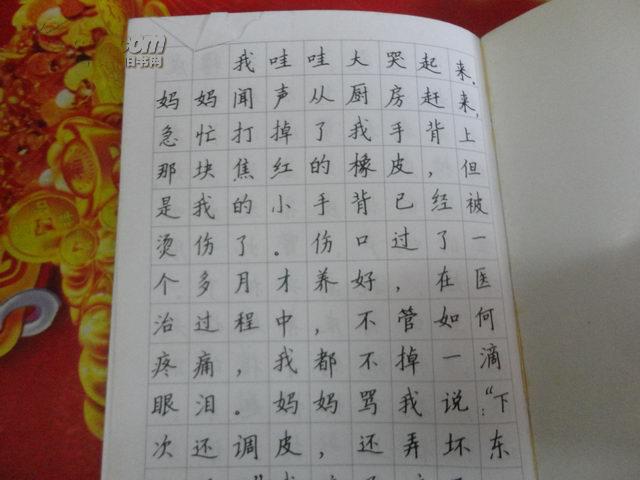 com
旧书网
我哇哇大哭起来,
妈妈闻声从厨房赶来,
急忙打掉了我手背上
那块焦红的橡皮,但
是我的小手背已经被
烫伤了。伤口过了一
个多月才养好,在医
治过程中,不管如何
疼痛,我都不掉一滴
眼泪。妈妈骂我说:“下
次还调皮,还弄坏东